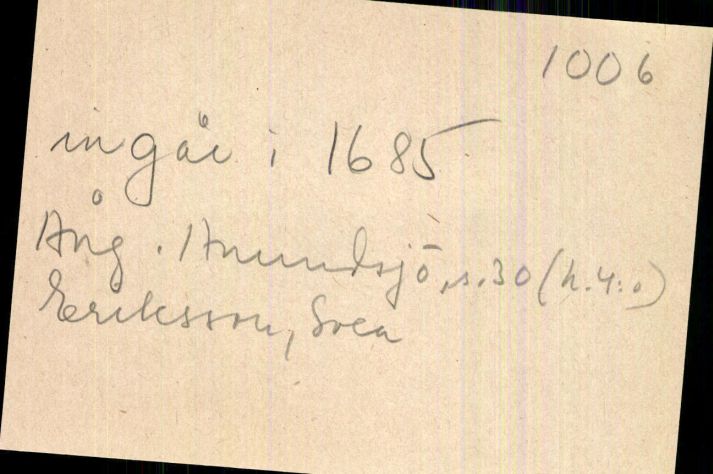 1006
ingår i 1685
Ång. Anundsjö, s. 30 (h. 4:o)
Eriksson, Svea